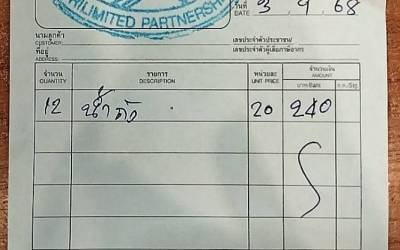 LIMITED PARTNERSHIP
วันที่ 3 9 68
DATE
นามลูกค้า
CUSTOMER
เลขประจำตัวประชาชน/
ที่อยู่
เลขประจำตัวผู้เสียภาษีอากร
ADDRESS
จำนวน รายการ หน่วยละ จำนวนเงิน
QUANTITY DESCRIPTION UNIT PRICE AMOUNT
บาท Baht ส.ต./Stg
12 น้ำถัง 20 240